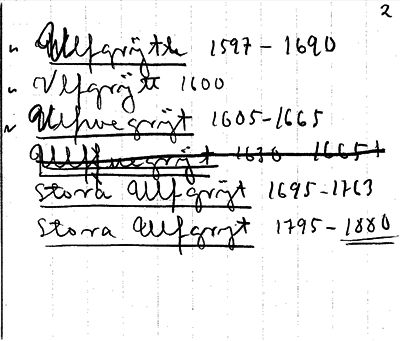 2
" Ulfgrÿtte 1597-1690
" Vlfgrÿtt 1600
" Ulfvegrÿt 1605-1665
Ulffvegrÿt 1630 1665+
Stora Ulfgrÿt 1695-1763
Stora Ulfgryt 1795-1880